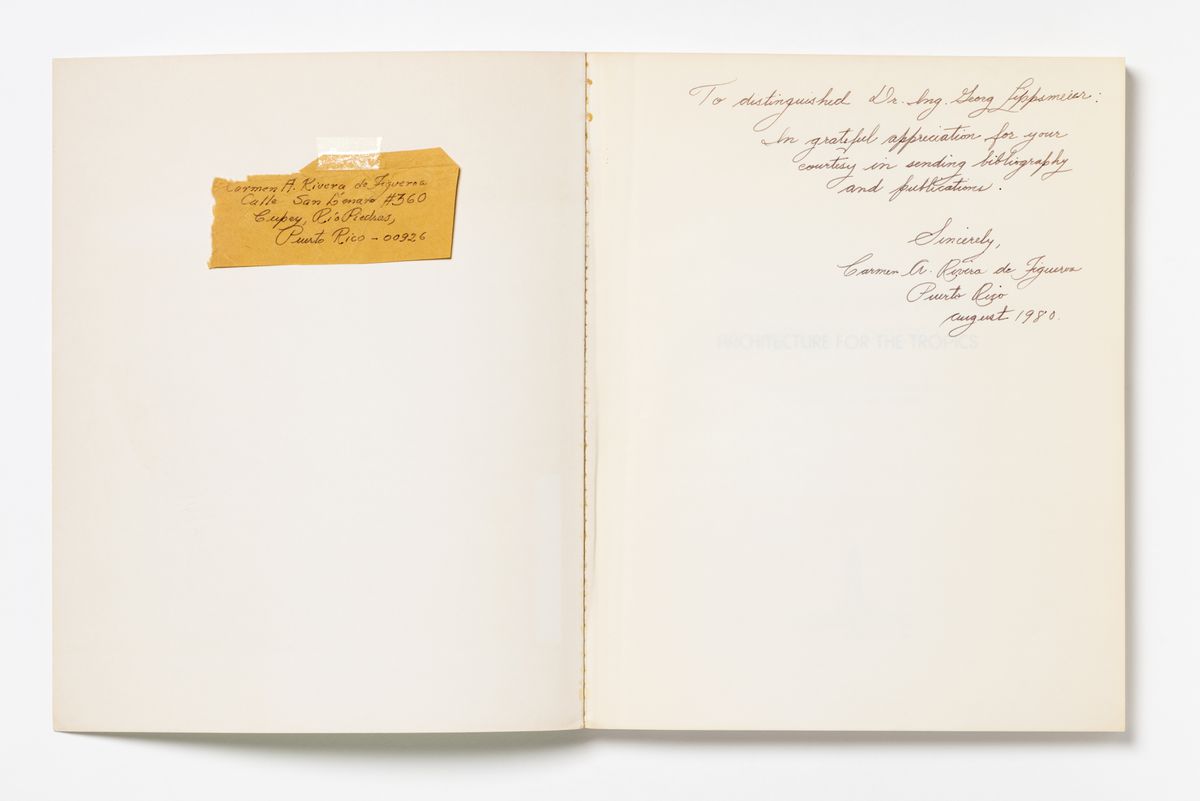 Carmen A. Rivera de Figueroa
Calle San Genaro #360
Cupey, Río Piedras,
Puerto Rico - 00926
To distinguished Dr. Ing. Georg Lippsmeier:
In grateful appreciation for your
courtesy in sending bibliography
and publications.
Sincerely,
Carmen A. Rivera de Figueroa
Puerto Rico
August 1980.
ARCHITECTURE FOR THE TROPICS